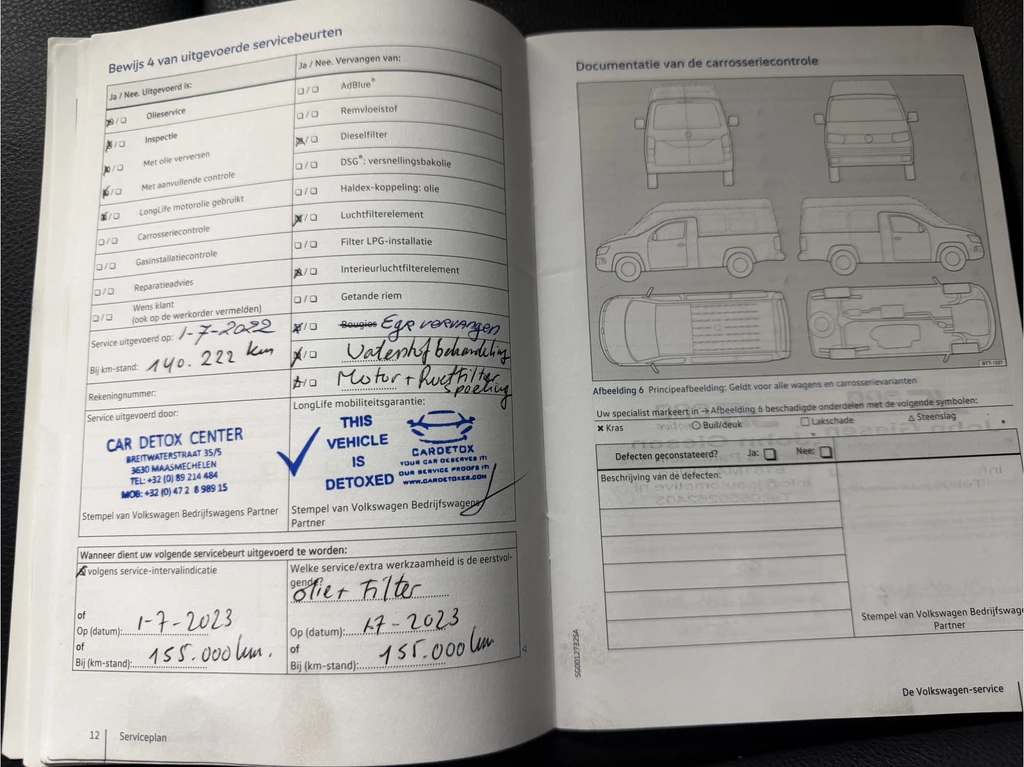 Bewijs 4 van uitgevoerde servicebeurten
Ja / Nee. Uitgevoerd is:
☒/❑ Olieservice
☒/❑ Inspectie
☒/❑ Met olie verversen
☒/❑ Met aanvullende controle
☒/❑ LongLife motorolie gebruikt
❑/❑ Carrosseriecontrole
❑/❑ Gasinstallatiecontrole
❑/❑ Reparatieadvies
❑/❑ Wens klant
(ook op de werkorder vermelden)
Service uitgevoerd op: 1-7-2022
Bij km-stand: 140.222 km
Rekeningnummer:
Service uitgevoerd door:
CAR DETOX CENTER
BREITWATERSTRAAT 35/5
3630 MAASMECHELEN
TEL: +32 (0) 89 214 484
MOB: +32 (0)47 2 8 989 15
Stempel van Volkswagen Bedrijfswagens Partner
Ja / Nee. Vervangen van:
❑/❑ AdBlue®
❑/❑ Remvloeistof
☒/❑ Dieselfilter
❑/❑ DSG®: versnellingsbakolie
❑/❑ Haldex-koppeling: olie
☒/❑ Luchtfilterelement
❑/❑ Filter LPG-installatie
☒/❑ Interieurluchtfilterelement
❑/❑ Getande riem
☒/❑ Bougies Egr vervangen
☒/❑ Waterstof behandeling
☒/❑ Motor + Roetfilter
spoeling
LongLife mobiliteitsgarantie:
THIS
VEHICLE
IS
DETOXED
CARDETOX
YOUR CAR DESERVES IT!
OUR SERVICE PROOFS IT!
WWW.CARDETOXER.COM
Stempel van Volkswagen Bedrijfswagens
Partner
Wanneer dient uw volgende servicebeurt uitgevoerd te worden:
☒ volgens service-intervalindicatie
of
Op (datum): 1-7-2023
of
Bij (km-stand): 155.000 km.
Welke service/extra werkzaamheid is de eerstvol-
gende?
Olie + Filter
Op (datum): 1-7-2023
of
Bij (km-stand): 155.000 km
12 Serviceplan
Documentatie van de carrosseriecontrole
Afbeelding 6 Principeafbeelding: Geldt voor alle wagens en carrosserievarianten
Uw specialist markeert in → Afbeelding 6 beschadigde onderdelen met de volgende symbolen:
✖ Kras ○ Buil/deuk □ Lakschade △ Steenslag
Defecten geconstateerd? Ja: ❑ Nee: ❑
Beschrijving van de defecten:
Stempel van Volkswagen Bedrijfswage
Partner
SG0012732SA
De Volkswagen-service